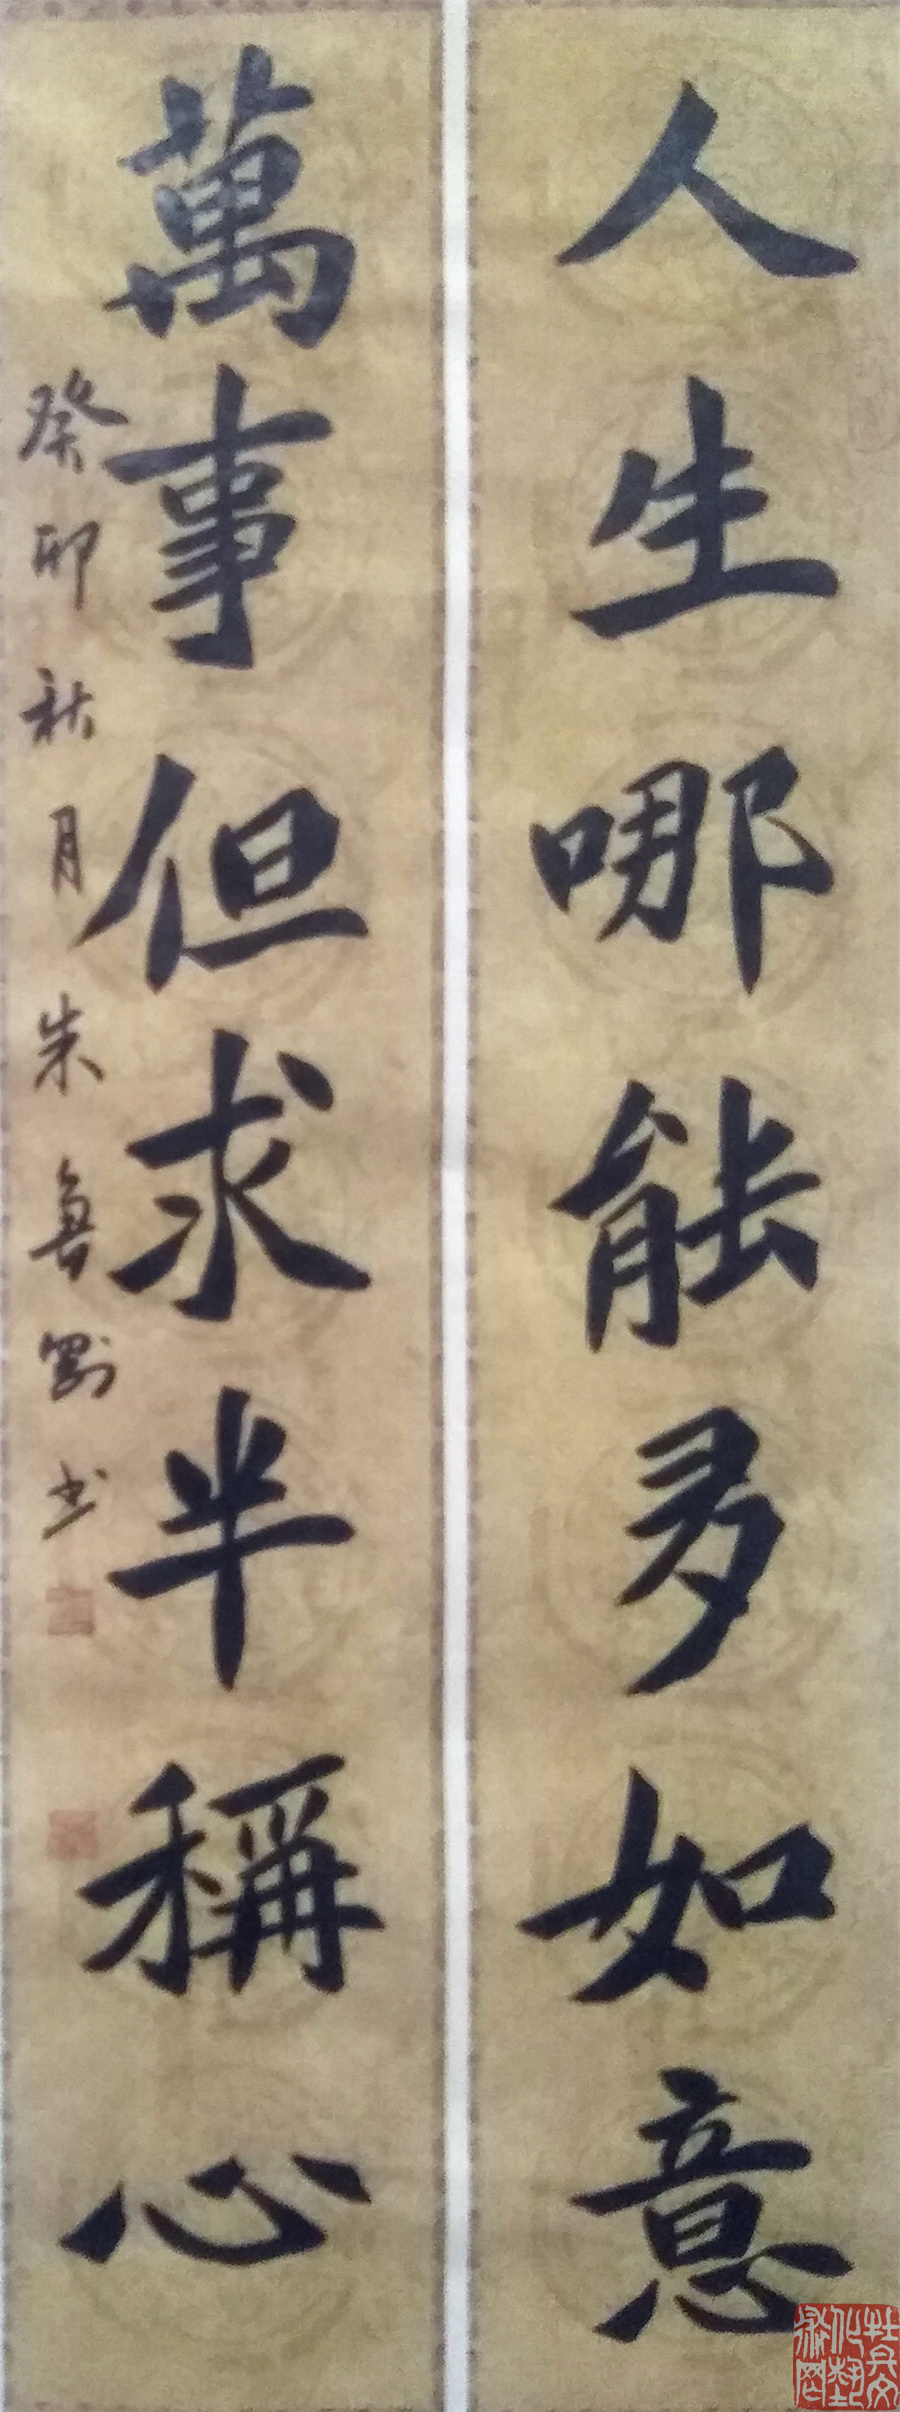 人生哪能多如意
萬事但求半稱心
癸卯秋月朱魯劉书